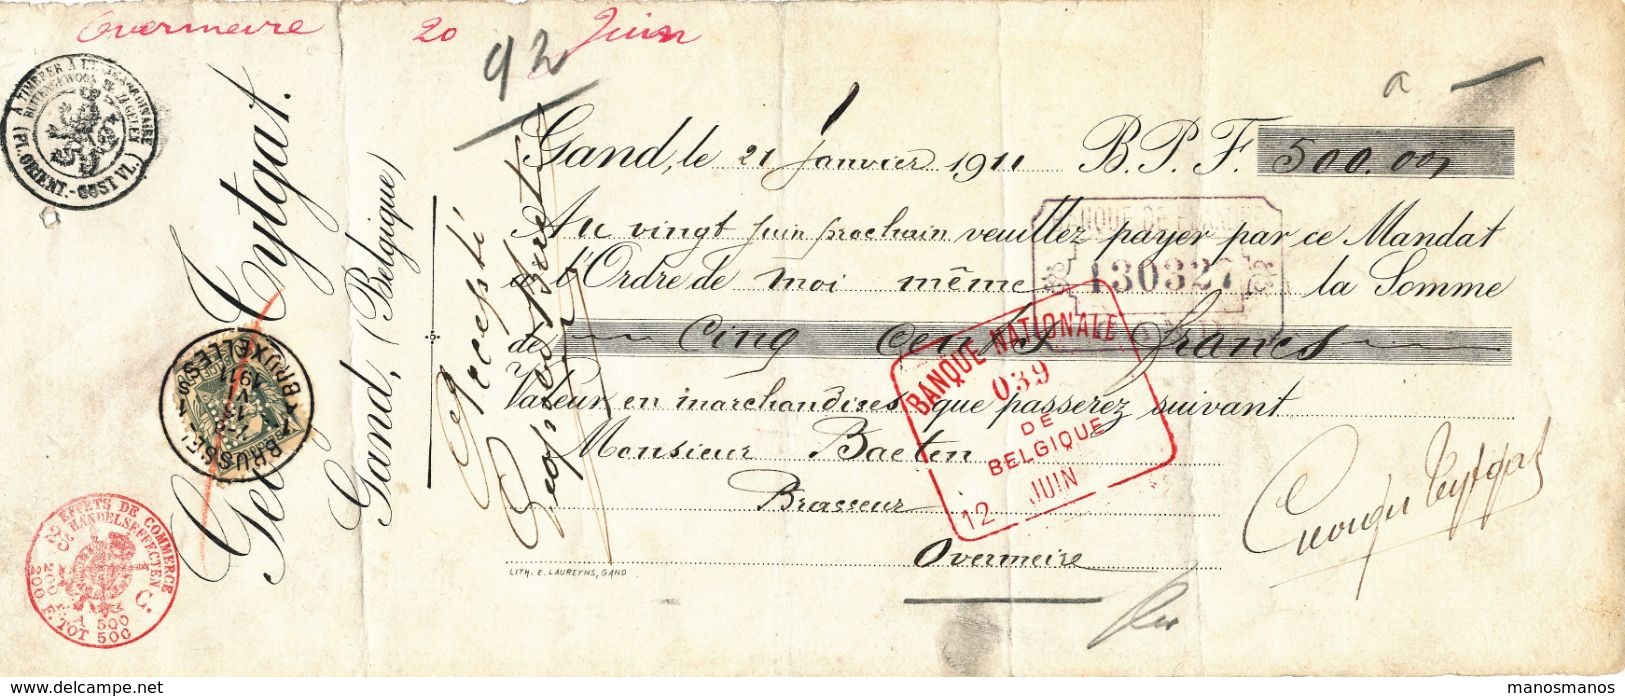 Overmeire 20 Juin
92
a
Gand, le 21 Janvier 1911 B.P.F. 500.00
Au vingt Juin prochain veuillez payer par ce Mandat
à l'Ordre de moi même la Somme
de cinq cents francs
Valeur en marchandises que passerez suivant
Monsieur Baeten
Brasseur
Overmeire
LITH. E. LAUREYNS, GAND
Accepté
Geo. Cytgat.
Gand, (Belgique)
A TIMBRER A L'EXTRAORDINAIRE
BUITENGEWOON TE ZEGELEN
(FL. ORIENT.-OOST VL.)
BRUSSEL 1
BRUXELLES
1911
EFFETS DE COMMERCE
HANDELSEFFECTEN
C.
200 F. A 500
200 F. TOT 500
130327
BANQUE NATIONALE
039
DE
BELGIQUE
12 JUIN
manosmanos